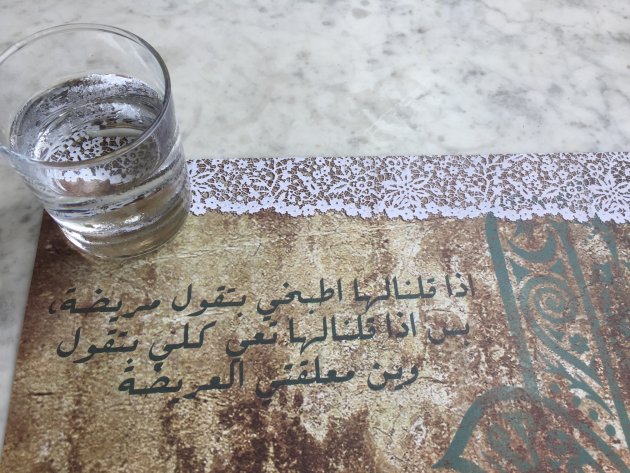 اذا قلنالها اطبخي بتقول مريضة،
بس اذا قلنالها تعي كلي بتقول
وين معلقتي العريضة